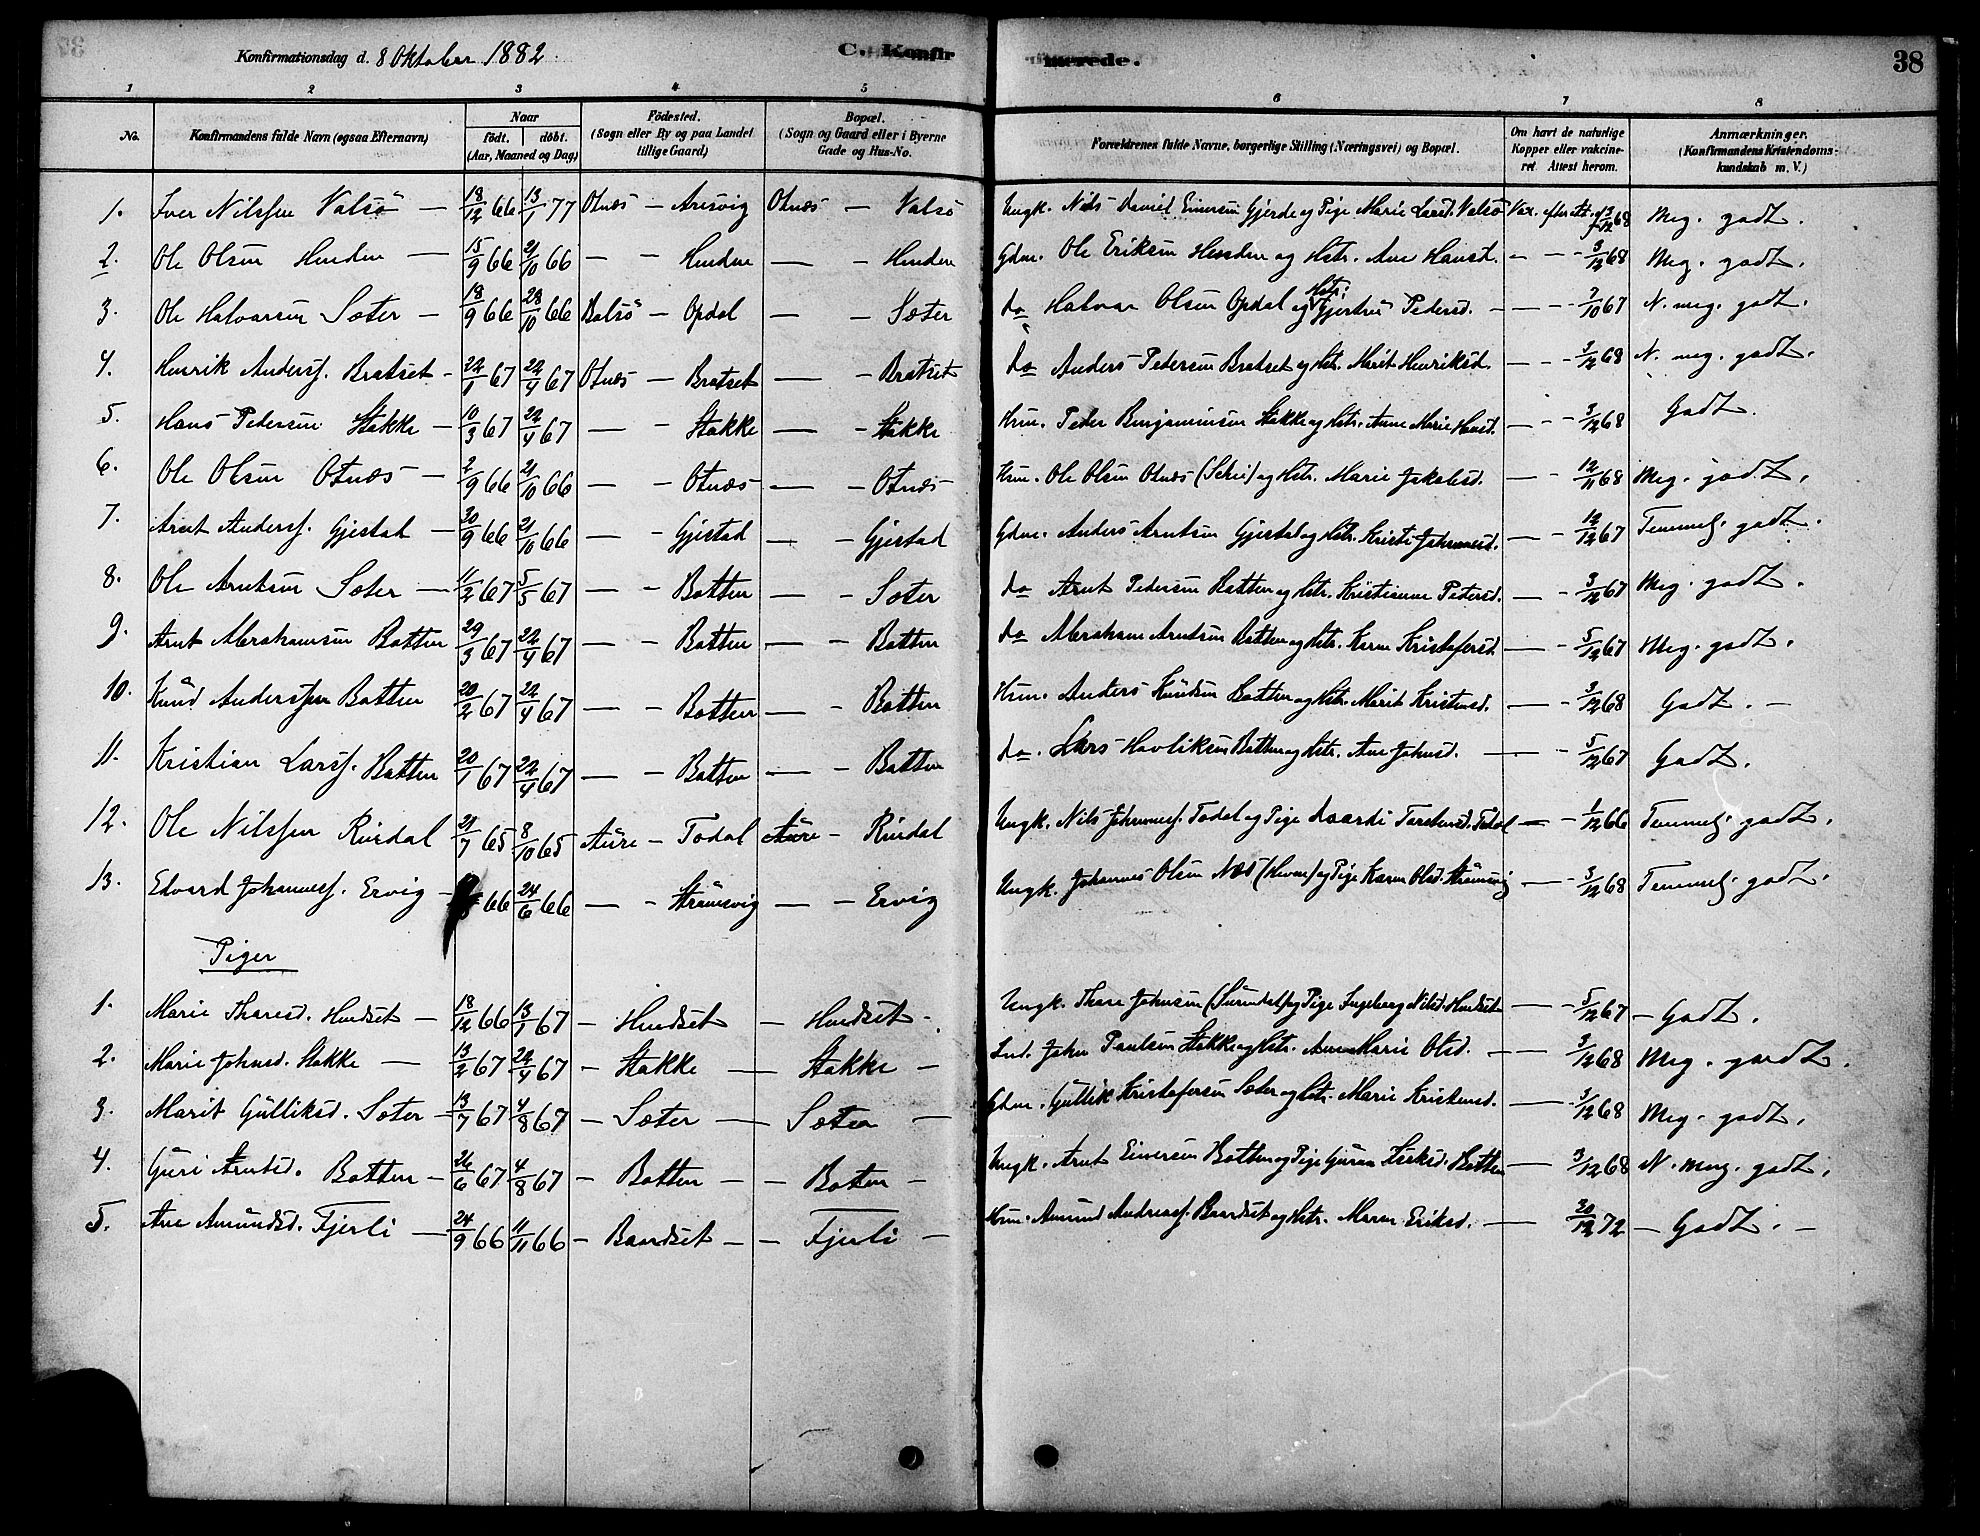 Konfirmationsdag d. 8 Oktober 1882. C. Konfirmerede. 38
1 2 3 4 5 6 7 8
No. Konfirmandens fulde Navn (ogsaa Efternavn) Naar født. døbt. (Aar, Maaned og Dag) Fødested. (Sogn eller By og paa Landet tillige Gaard) Bopæl. (Sogn og Gaard eller i Byerne Gade og Hus-No. Forældrenes fulde Navne, borgerlige Stilling (Næringsvei) og Bopæl. Om havt de naturlige Kopper eller vakcineret. Attest herom. Anmærkninger. (Konfirmandens Kristendomskundskab m. V.)
1. Iver Nilssen Valsö — 18/12 66 13/1 77 Otnæs — Aresvig Otnæs — Valsö Ungk. Nils David Einersen Gjerde og Pige Marie Larsd. Valsö Vax. 68 Meg. godt.
2. Ole Olsen Henden — 15/9 66 21/10 66 — - Henden — - Henden Gdm. Ole Eriksen Henden og Hstr. Ane Hansd. — - 3/12 68 Meg. godt.
3. Ole Halvorsen Sæter — 18/9 66 28/10 66 Halsö — Opdal — - Sæter do Halvor Olsen Opdal og Hstr. Gjertrud Pedersd. — - 7/10 67 N. meg. godt.
4. Henrik Anderss. Bratset - 22/1 67 22/4 67 Otnæs — Bratset — - Bratset do Anders Pedersen Bratset og Hstr. Marit Henriksd. — - 3/12 68 N. meg. godt.
5. Hans Pedersen Stokke — 10/3 67 22/4 67 — - Stokke — - Stokke Hsm. Peder Benjaminsen Stokke og Hstr. Anne Marie Hansd. — - 3/12 68 Godt.
6. Ole Olsen Otnæs — 2/9 66 21/10 66 — - Otnæs — - Otnæs Hsm. Ole Olsen Otnæs og Hstr. Marie Jakobsd. — - 12/11 68 Meg. godt.
7. Arnt Anderss. Gjestad — 20/9 66 21/10 66 — - Gjestad — - Gjestad Gdm. Anders Arntsen Gjestad og Hstr. Kristi Johannesd. — - 12/12 67 Temmel. godt.
8. Ole Arntsen Sæter — 11/2 67 5/5 67 — - Botten — - Sæter do Arnt Pedersen Botten og Hstr. Kristianne Pedersd. — - 3/12 67 Meg. godt.
9. Arnt Abrahamsen Botten 29/3 67 22/4 67 — - Botten — - Botten do Abraham Arntsen Botten og Hstr. Karen Kristofersd. — - 5/12 67 Meg. godt.
10. Knud Anderssen Botten 20/2 67 22/4 67 — - Botten — - Botten Hsm. Anders Knudsen Botten og Hstr. Marit Kristensd. — - 3/12 68 Godt. —
11. Kristian Larss. Botten 20/1 67 22/4 67 — - Botten — - Botten do. Lars Botten og Hstr. Ane Johnsd. — - 5/12 67 Godt.
12. Ole Nilssen Rindal 21/7 65 8/10 65 Aure — Todal Aure — Rindal Ungk. Nils Johanness. Todal og Pige Todal — - 1/12 66 Temmel. godt.
13. Edvard Johanness. Ervig — 66 24/6 66 — - Strömsvig — - Ervig Ungk. Johannes Olsen Næs og Pige Karen Olsd. Strömsvig — - 3/12 68 Temmel. godt.
Piger
1. Marie Thoresd. Hendset — 18/12 66 13/1 67 - Hendset — Hendset - Ungk. Thore Johnsen (Surendal) og Pige Ingeborg Nilsd. Hendset — - 5/12 67 — Godt.
2. Marie Johnsd. Stokke — 13/2 67 22/4 67 - Stokke — Stokke — Ind. John Paulsen Stokke og Hstr. Anne Marie Olsd. — - 3/12 68 Meg. godt.
3. Marit Gulliksd. Sæter — 13/7 67 4/8 67 - Sæter — Sæter — Gdm. Gullik Kristofersen Sæter og Hstr. Marie Kristensd. — - 3/12 68 Meg. godt.
4. Guri Arntsd. Botten — 26/6 67 4/8 67 - Botten — - Boten - Ungk. Arnt Einersen Botten og Pige Botten — 3/12 68 N. meg. godt.
5. Ane Amundsd. Fjerli — 24/9 66 11/11 66 - Baardset — - Fjerli — Hsm. Amund Andreass. Baardset og Hstr. Maren Eriksd. — 20/12 72 — Godt. —